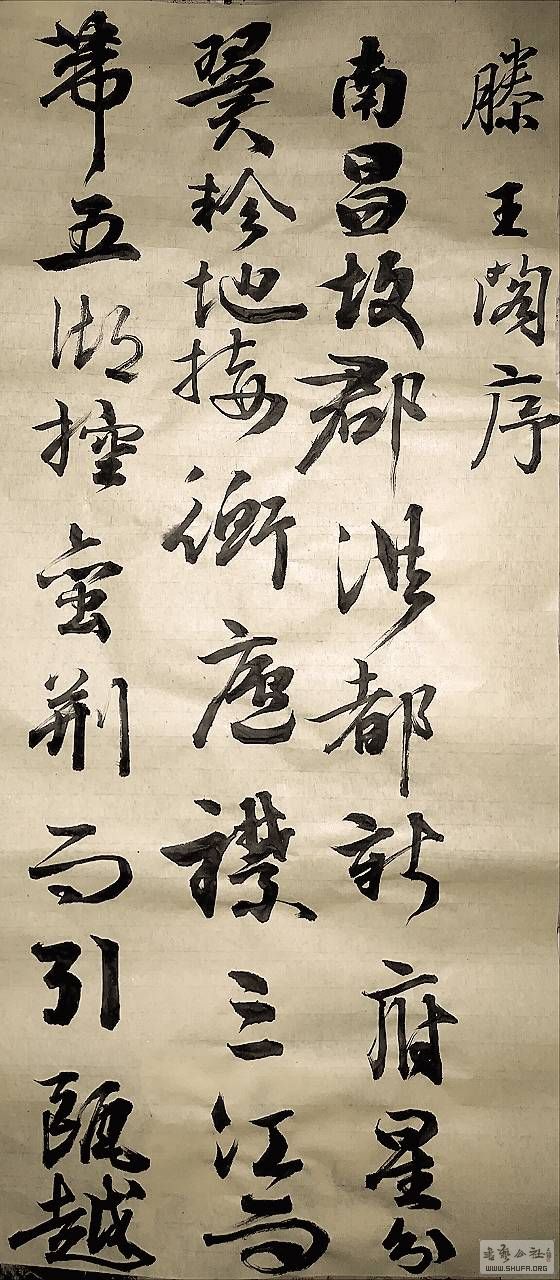 滕王阁序
南昌故郡洪都新府星分
翼軫地接衡廬襟三江而
帶五湖控蛮荆而引甌越
WWW.SHUFA.ORG